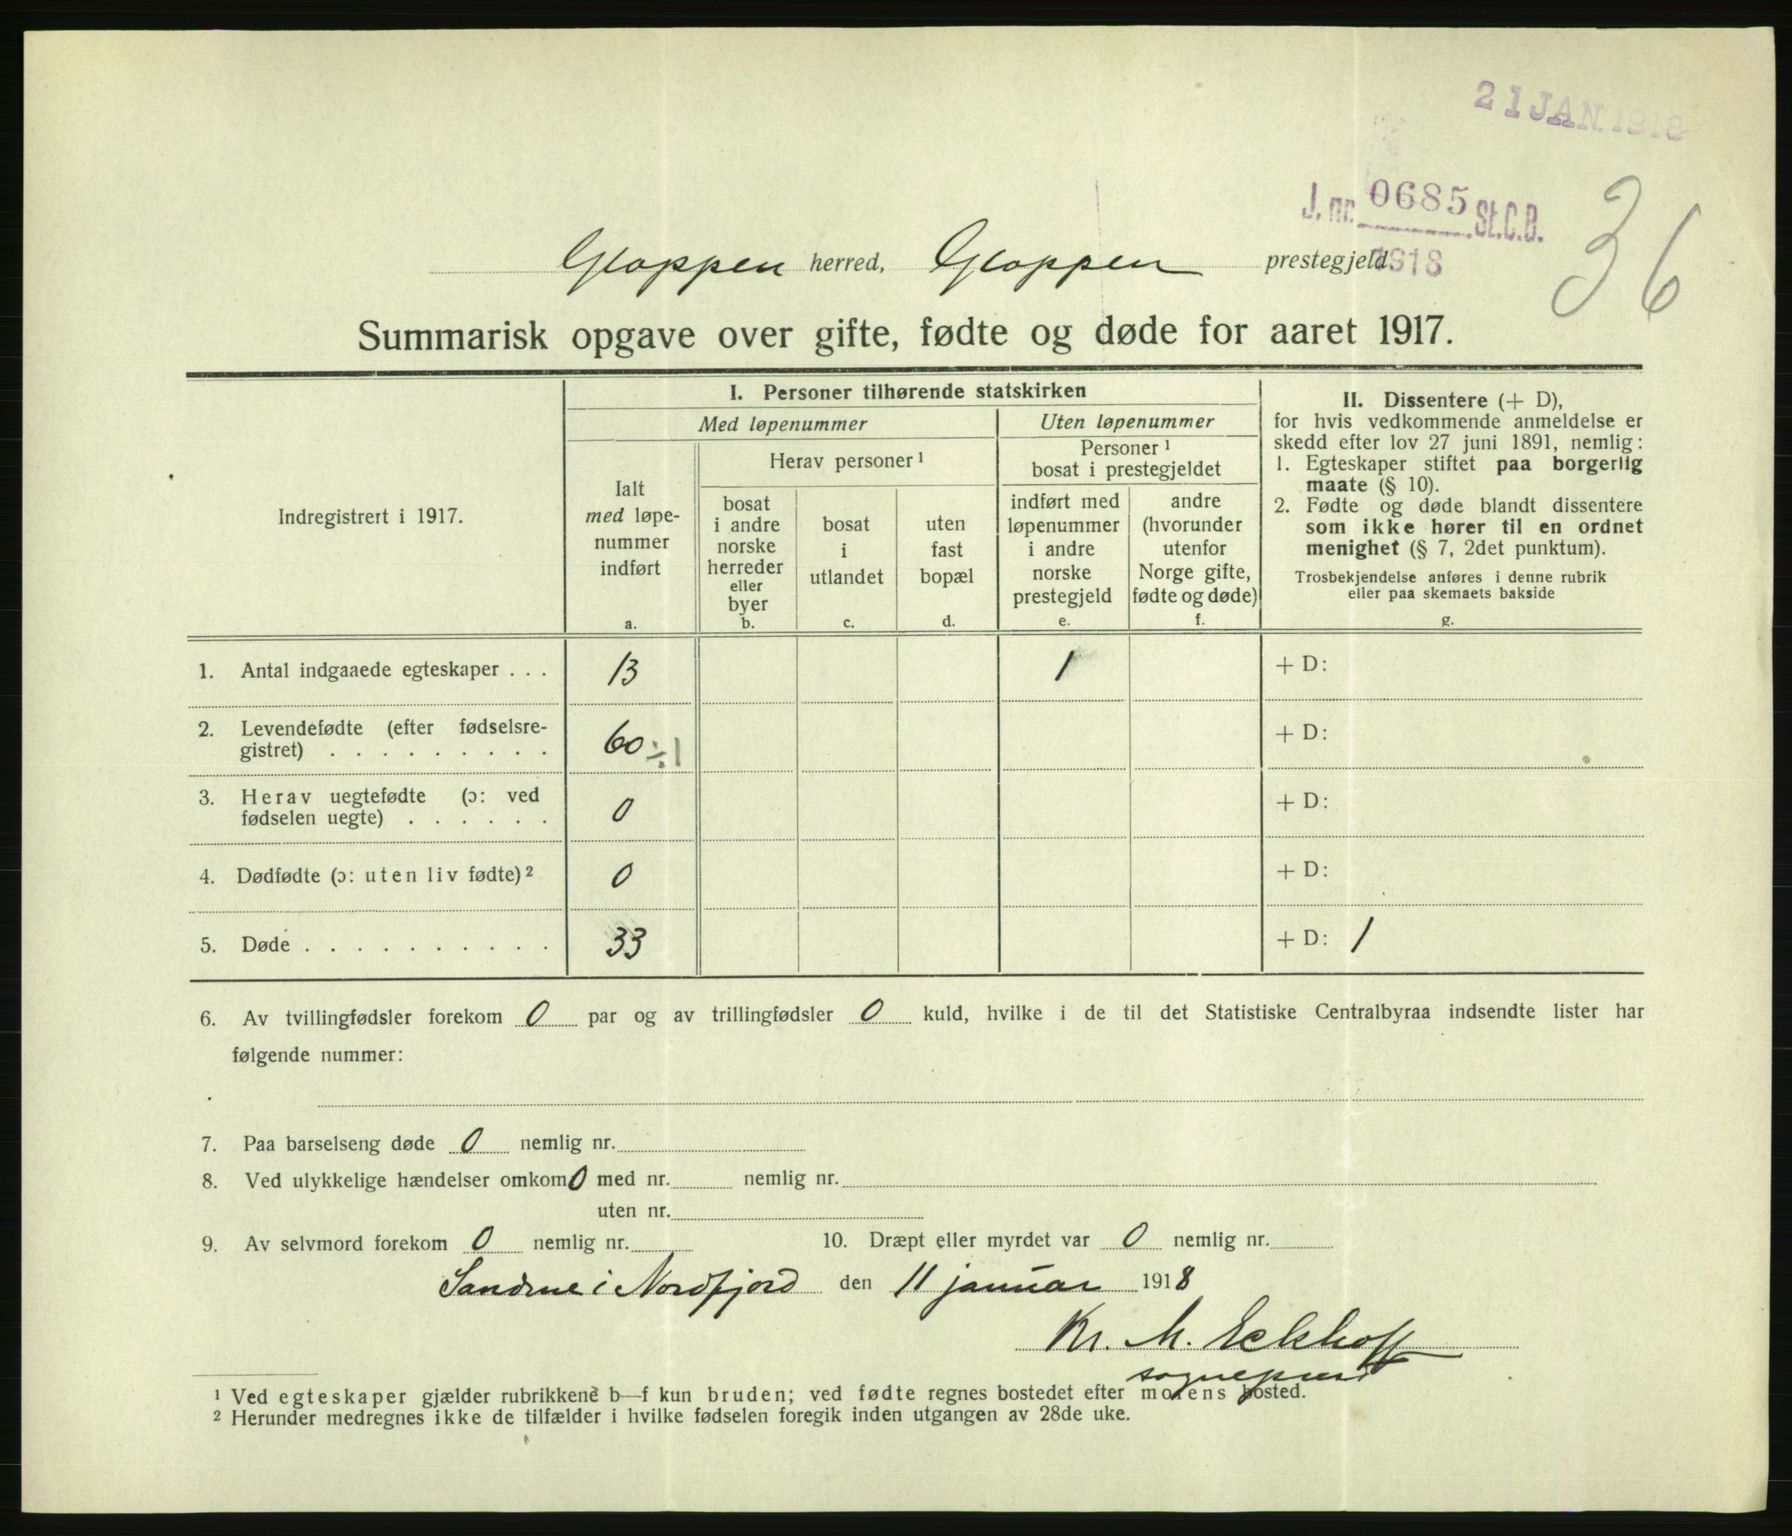 21 JAN. 1918
J. nr. 0685 St.C.B.
1918
36
Gloppen herred, Gloppen prestegjeld
Summarisk opgave over gifte, fødte og døde for aaret 1917.
Indregistrert i 1917.
I. Personer tilhørende statskirken
Med løpenummer
Uten løpenummer
Ialt
med løpe-
nummer
indført
a.
Herav personer ¹
bosat
i andre
norske
herreder
eller
byer
b.
bosat
i
utlandet
c.
uten
fast
bopæl
d.
Personer ¹
bosat i prestegjeldet
indført med
løpenummer
i andre
norske
prestegjeld
e.
andre
(hvorunder
utenfor
Norge gifte,
fødte og døde)
f.
II. Dissentere (+ D),
for hvis vedkommende anmeldelse er
skedd efter lov 27 juni 1891, nemlig:
1. Egteskaper stiftet paa borgerlig
maate (§ 10).
2. Fødte og døde blandt dissentere
som ikke hører til en ordnet
menighet (§ 7, 2det punktum).
Trosbekjendelse anføres i denne rubrik
eller paa skemaets bakside
g.
1. Antal indgaaede egteskaper . . . 13 1 + D:
2. Levendefødte (efter fødselsre-
gistret) . . . . . . . . . 60 ÷1 + D:
3. Herav uegtefødte (ɔ: ved
fødselen uegte) . . . . . . 0 + D:
4. Dødfødte (ɔ: uten liv fødte) ² 0 + D:
5. Døde . . . . . . . . . . 33 + D: 1
6. Av tvillingfødsler forekom 0 par og av trillingfødsler 0 kuld, hvilke i de til det Statistiske Centralbyraa indsendte lister har
følgende nummer:
7. Paa barselseng døde 0 nemlig nr.
8. Ved ulykkelige hændelser omkom 0 med nr. nemlig nr.
uten nr.
9. Av selvmord forekom 0 nemlig nr. 10. Dræpt eller myrdet var 0 nemlig nr.
Sandene i Nordfjord den 11 januar 1918
Kr. M. Eckhoff
sogneprest
¹ Ved egteskaper gjælder rubrikkene b—f kun bruden; ved fødte regnes bostedet efter morens bosted.
² Herunder medregnes ikke de tilfælder i hvilke fødselen foregik inden utgangen av 28de uke.